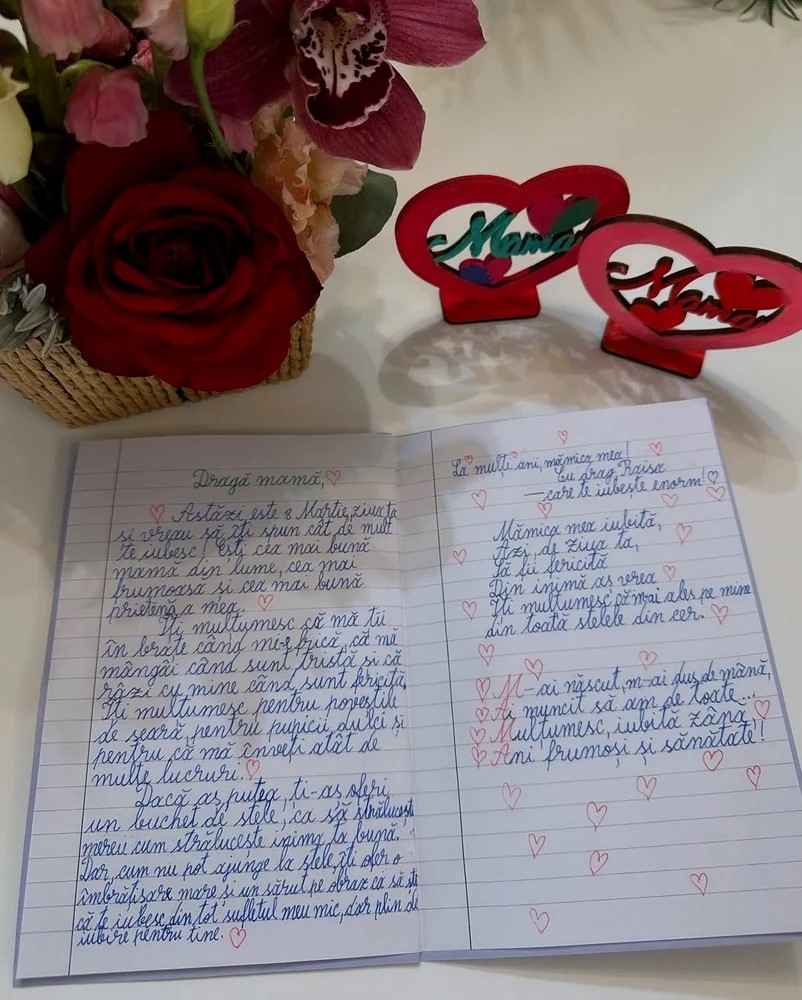 Mama
Mama
Dragă mamă,
Astăzi, este 8 Martie, ziua ta
și vreau să îți spun cât de mult
te iubesc! Ești cea mai bună
mamă din lume, cea mai
frumoasă și cea mai bună
prietenă a mea.
Îți mulțumesc că mă ții
în brațe când mi-e frică, că mă
mângâi când sunt tristă și că
râzi cu mine când sunt fericită.
Îți mulțumesc pentru poveștile
de seară, pentru pupicii dulci și
pentru că mă înveți atât de
multe lucruri.
Dacă aș putea, ți-aș oferi
un buchet de stele, ca să strălucești
mereu cum strălucește inima ta bună.
Dar, cum nu pot ajunge la stele, îți ofer o
îmbrățișare mare și un sărut pe obraz ca să știi
că te iubesc din tot sufletul meu mic, dar plin de
iubire pentru tine.
La mulți ani, mămica mea!
Cu drag Raisa
—care te iubește enorm!
Mămica mea iubită,
Azi, de ziua ta,
Să fii fericită
Din inimă aș vrea
Îți mulțumesc că m-ai ales pe mine
din toată stelele din cer.
M-ai născut, m-ai dus de mână,
Ai muncit să am de toate...
Mulțumesc, iubită zână
Ani frumoși și sănătate!